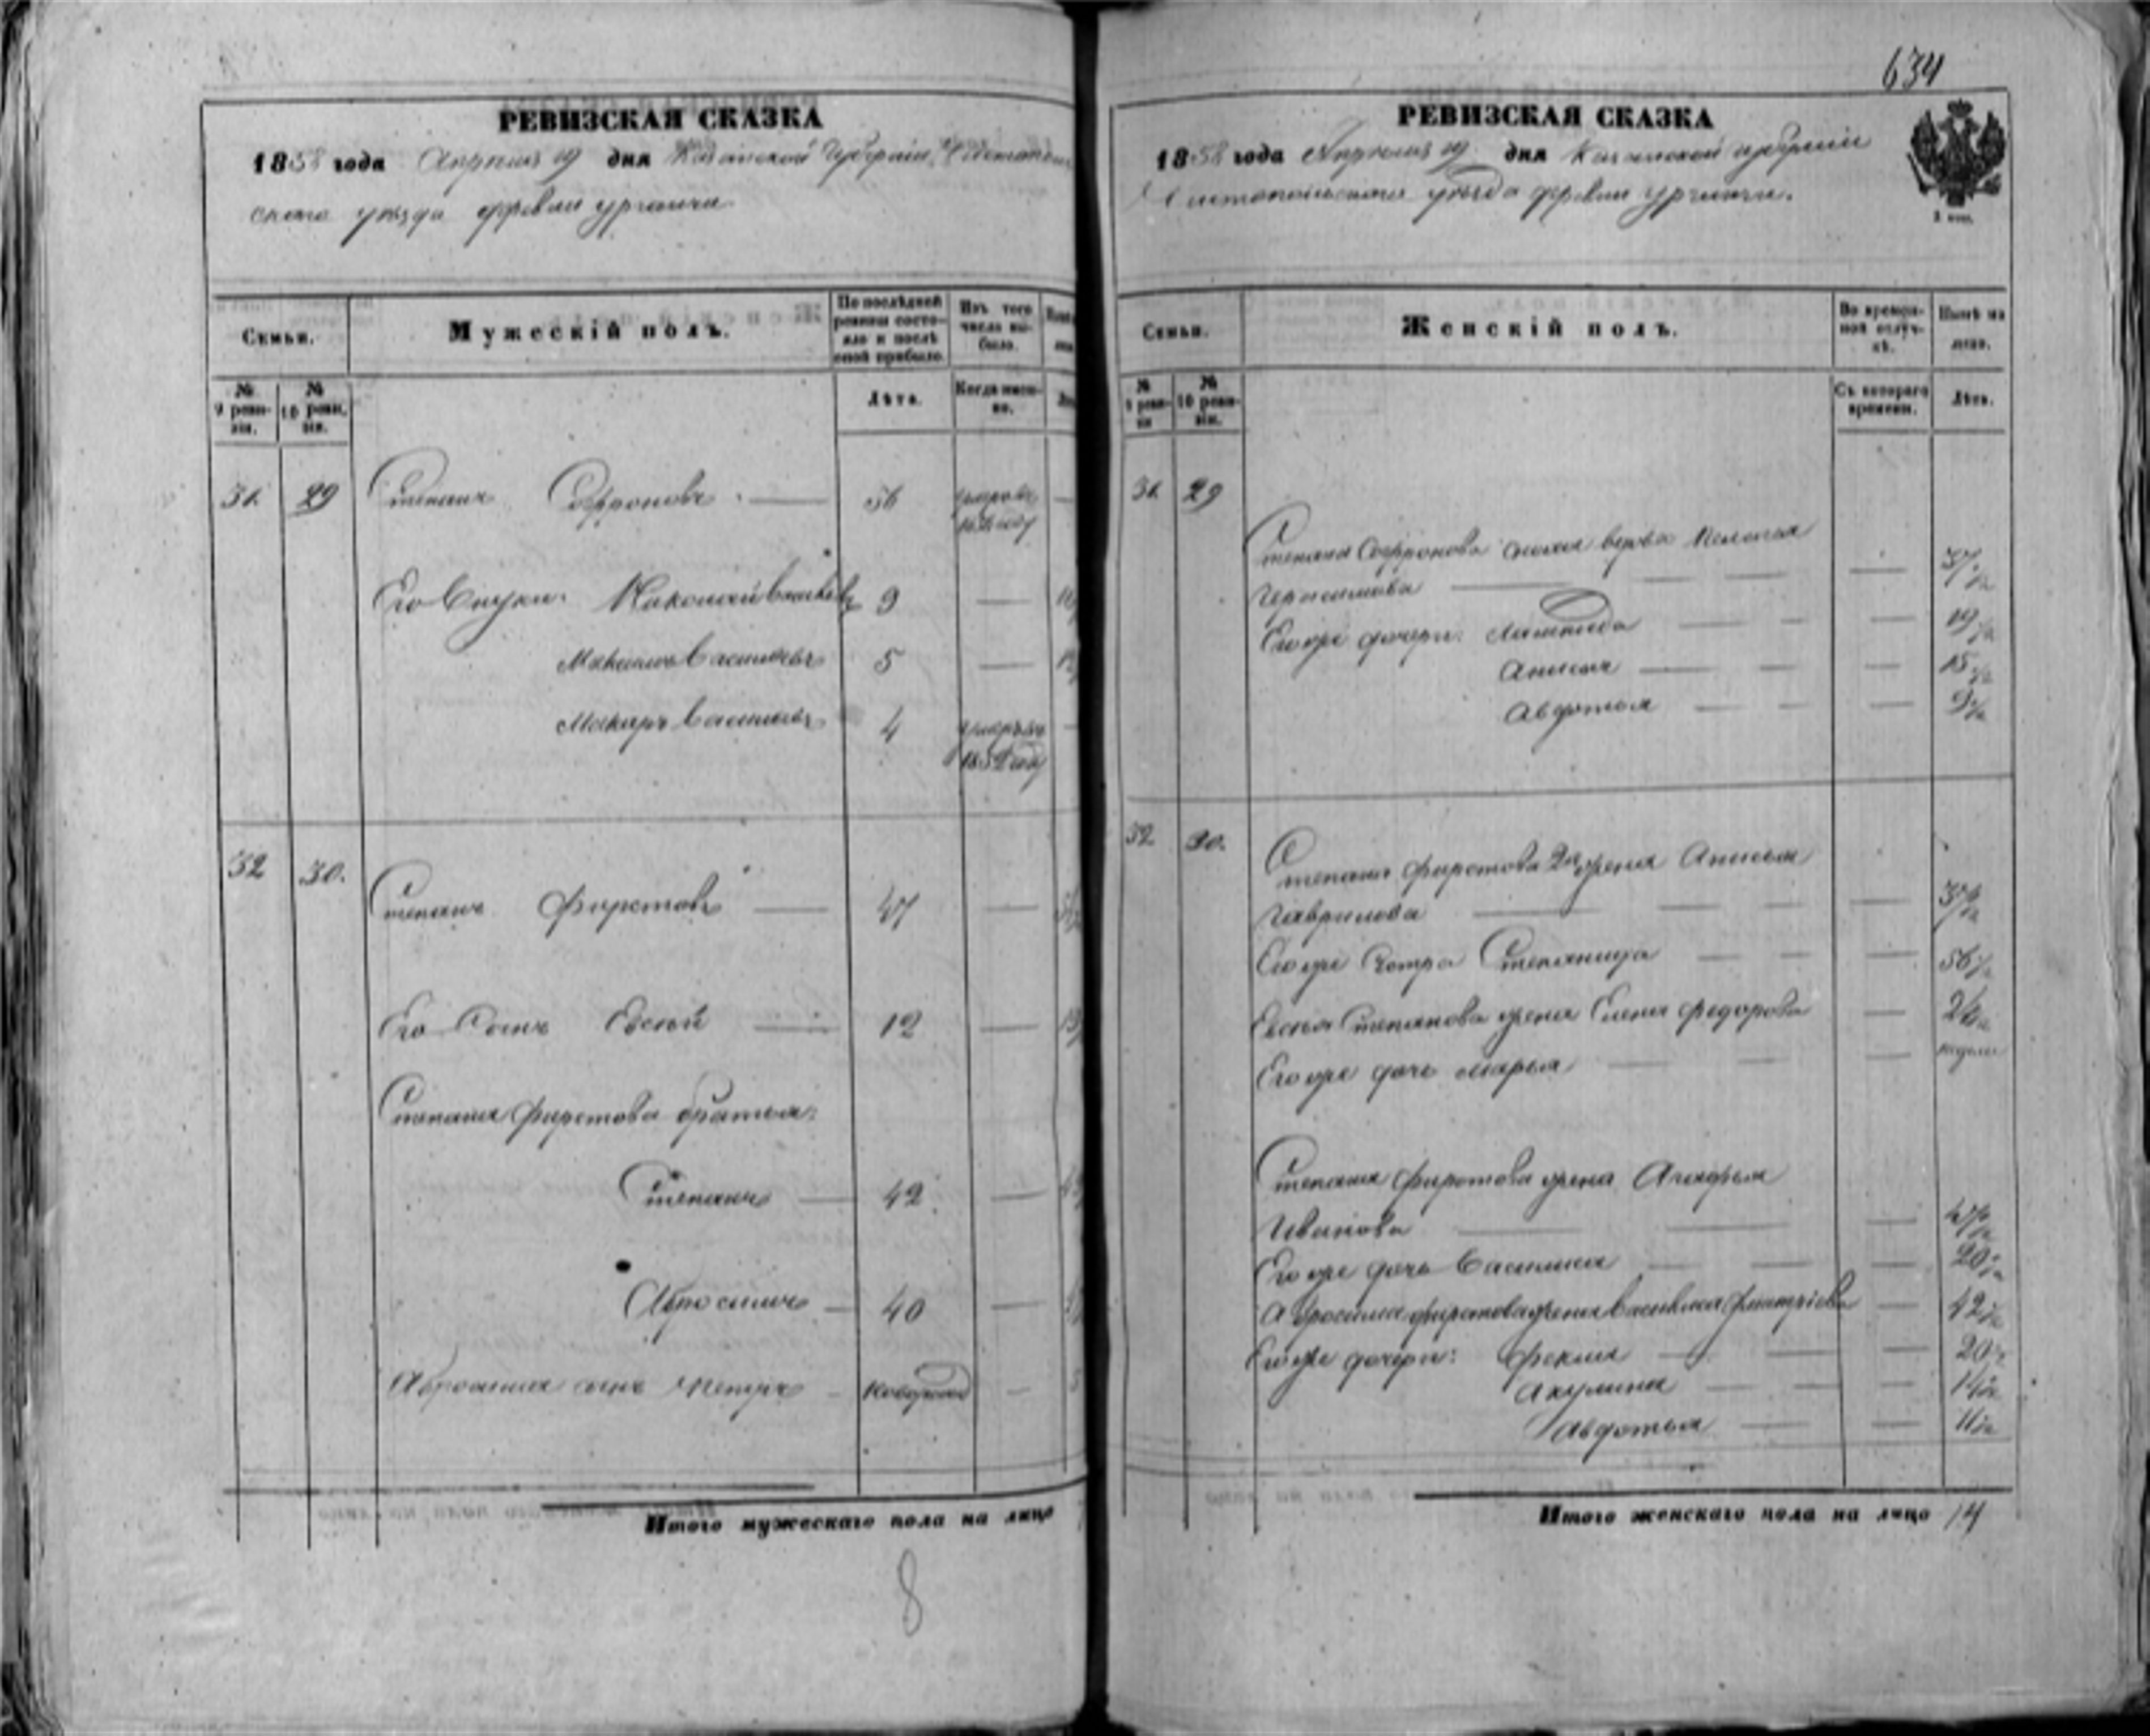 634
РЕВИЗСКАЯ СКАЗКА
1858 года Апреля 19 дня Казанской Губернии, Чистополь
скаго уѣзда деревни Урганчи
Семьи.
Мужескій полъ.
По послѣдней ревизіи состояло и послѣ оной прибыло.
Изъ того числа выбыло.
№ 9 ревизіи.
№ 10 ревизіи.
Лѣта.
Когда именно.
31. 29 Степанъ Софроновъ 56 умеръ въ
Его Внуки: Николай Васильевъ 9
Максимъ Васильевъ 5
Макаръ Васильевъ 4 умеръ въ
1852 году
32 30. Степанъ Фирстовъ 47
Его Сынъ Евсѣй 12
Степана Фирстова братья:
Степанъ 42.
Абросимъ 40
Абросима сынъ Петръ
Итого мужескаго пола на лицо
8
РЕВИЗСКАЯ СКАЗКА
1858 года Апреля 19 дня Казанской губернии
Чистопольскаго уѣзда деревни Урганчи.
Семьи.
Женскій полъ.
Во временной отлучкѣ.
Нынѣ на лицо.
№ 9 ревизіи
№ 10 ревизіи.
Съ котораго времени.
Лѣта.
31. 29
Степана Софронова сноха вдова Пелагея
Герасимова
Еи же дочери: 19
Анисья 15
Авдотья 9
32 30.
Степана Фирстова 2я жена Анисья
Гаврилова
Его же Сестра Степанида 56
Евсѣя Степанова жена Елена Федорова
Его же дочь Марья недели
Степана Фирстова жена Агафья
Иванова
Его же дочь Василиса 20
Абросима Фирстова жена Василиса Дмитріева 42
Его же дочери: Фекла 20
Акулина
Авдотья 11
Итого женскаго пола на лицо 14